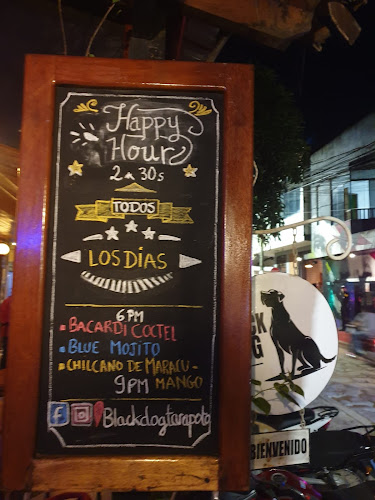 Happy
Hour
2 x 30s
TODOS
LOS DIAS
6 PM
BACARDI COCTEL
BLUE MOJITO
CHILCANO DE MARACU-
9PM MANGO
Blackdogtarapoto
CK
G
BIENVENIDO